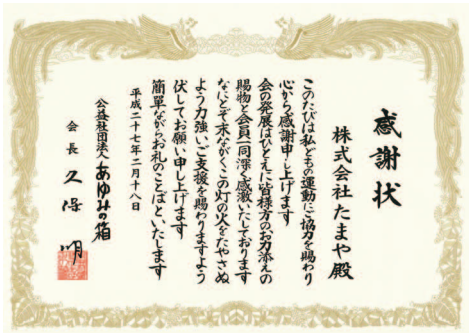 感謝状
株式会社たまや殿
このたびは私どもの運動にご協力を賜わり
心から感謝申し上げます
会の発展はひとえに皆様方のお力添えの
賜物と会員一同深く感激いたしております
なにとぞ末ながくこの灯の火をたやさぬ
よう力強いご支援を賜わりますよう
伏してお願い申し上げます
簡單ながらお礼のことばといたします
平成二十七年二月十八日
公益社団法人 あゆみの箱
会長 久保 明